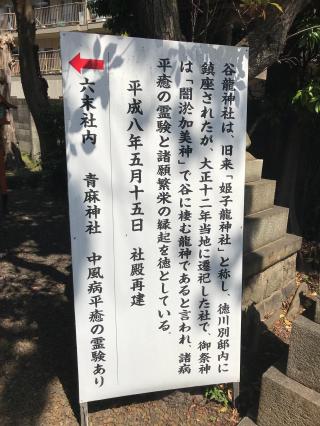 谷龍神社は、旧来「姫子龍神社」と称し、徳川別邸内に
鎮座されたが、大正十二年当地に遷祀した社で、御祭神
は「闇淤加美神」で谷に棲む龍神であると言われ、諸病
平癒の霊験と諸願繁栄の縁起を徳としている。
平成八年五月十五日　社殿再建
六末社内　青麻神社　中風病平癒の霊験あり